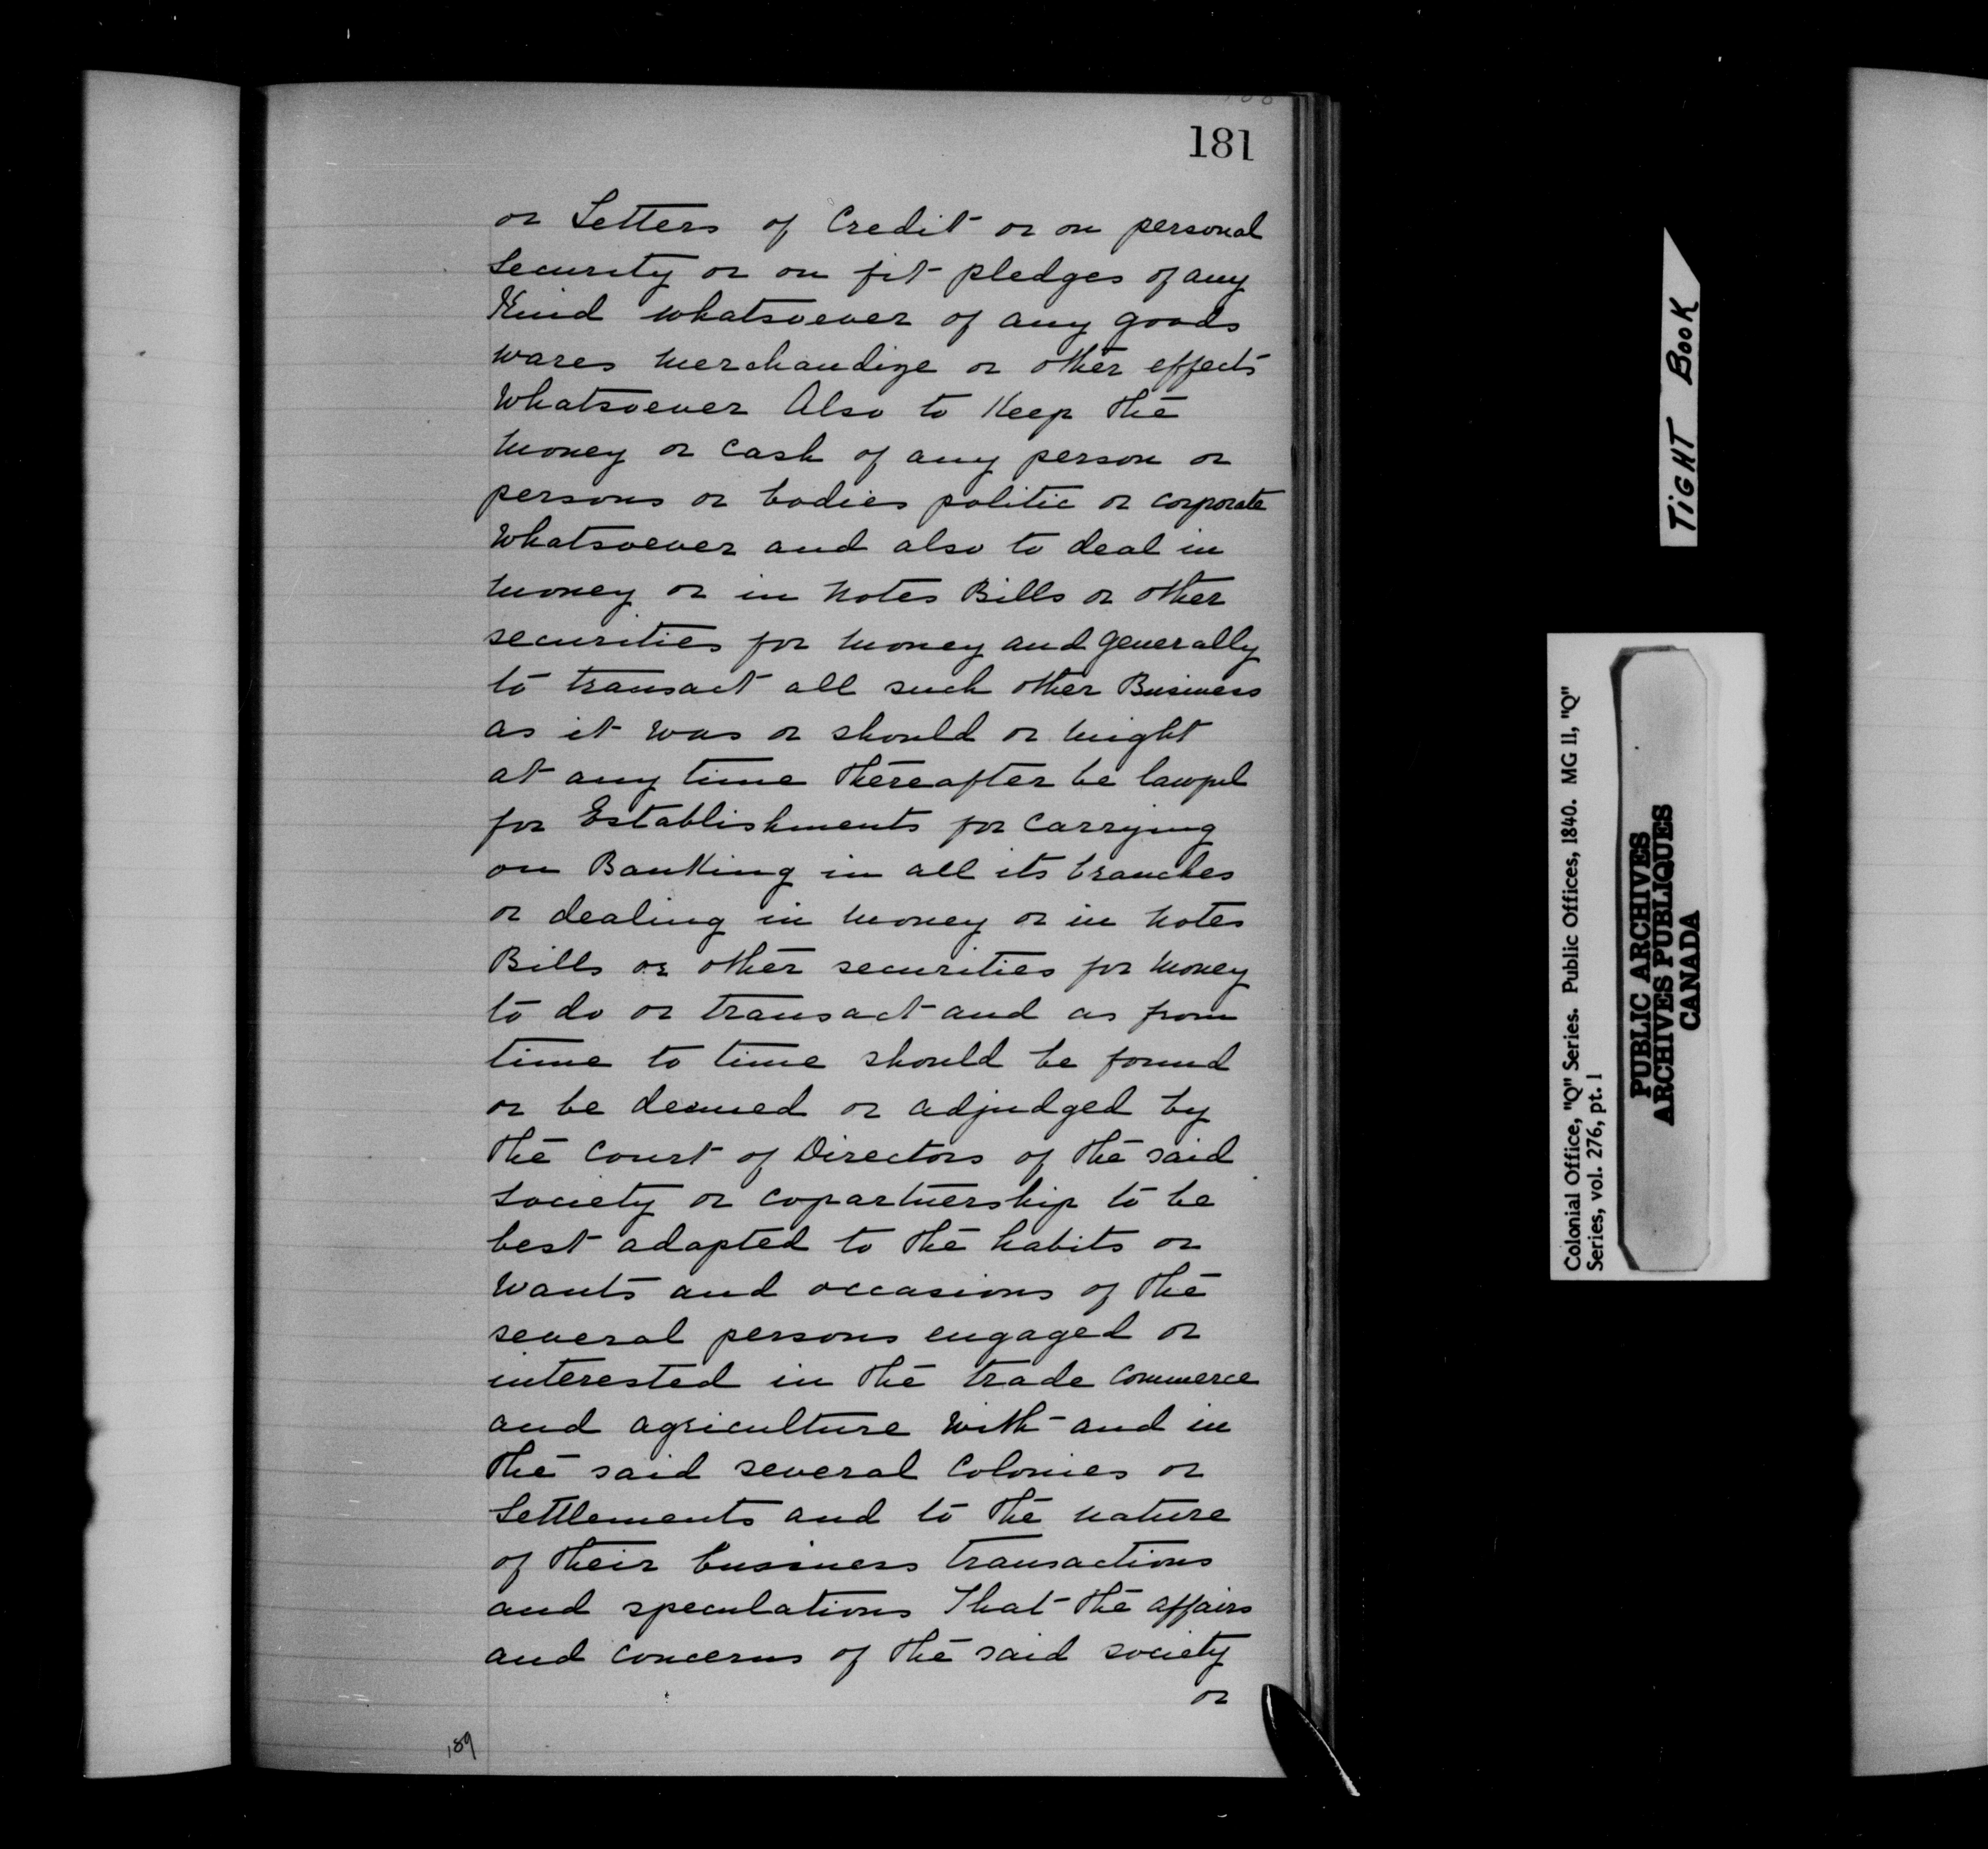 181
or Letters of Credit or on personal
security or on fit pledges of any
Kind whatsoever of any goods
wares merchandize or other effects
whatsoever Also to Keep the
money or cash of any person or
persons or bodies politic or corporate
whatsoever and also to deal in
money or in notes Bills or other
securities for money and generally
to transact all such other Business
as it was or should or might
at any time thereafter be lawful
for Establishments for carrying
on Banking in all its branches
or dealing in money or in notes
Bills or other securities for money
to do or transact and as from
time to time should be found
or be deemed or adjudged by
the Court of Directors of the said
society or copartnership to be
best adapted to the habits or
wants and occasions of the
several persons engaged or
interested in the trade commerce
and agriculture with and in
the said several Colonies or
Settlements and to the nature
of their business transactions
and speculations That the affairs
and concerns of the said society
or
189
TIGHT BOOK
Colonial Office, "Q" Series. Public Offices, 1840. MG 11, "Q"
Series, vol. 276, pt. 1
PUBLIC ARCHIVES
ARCHIVES PUBLIQUES
CANADA